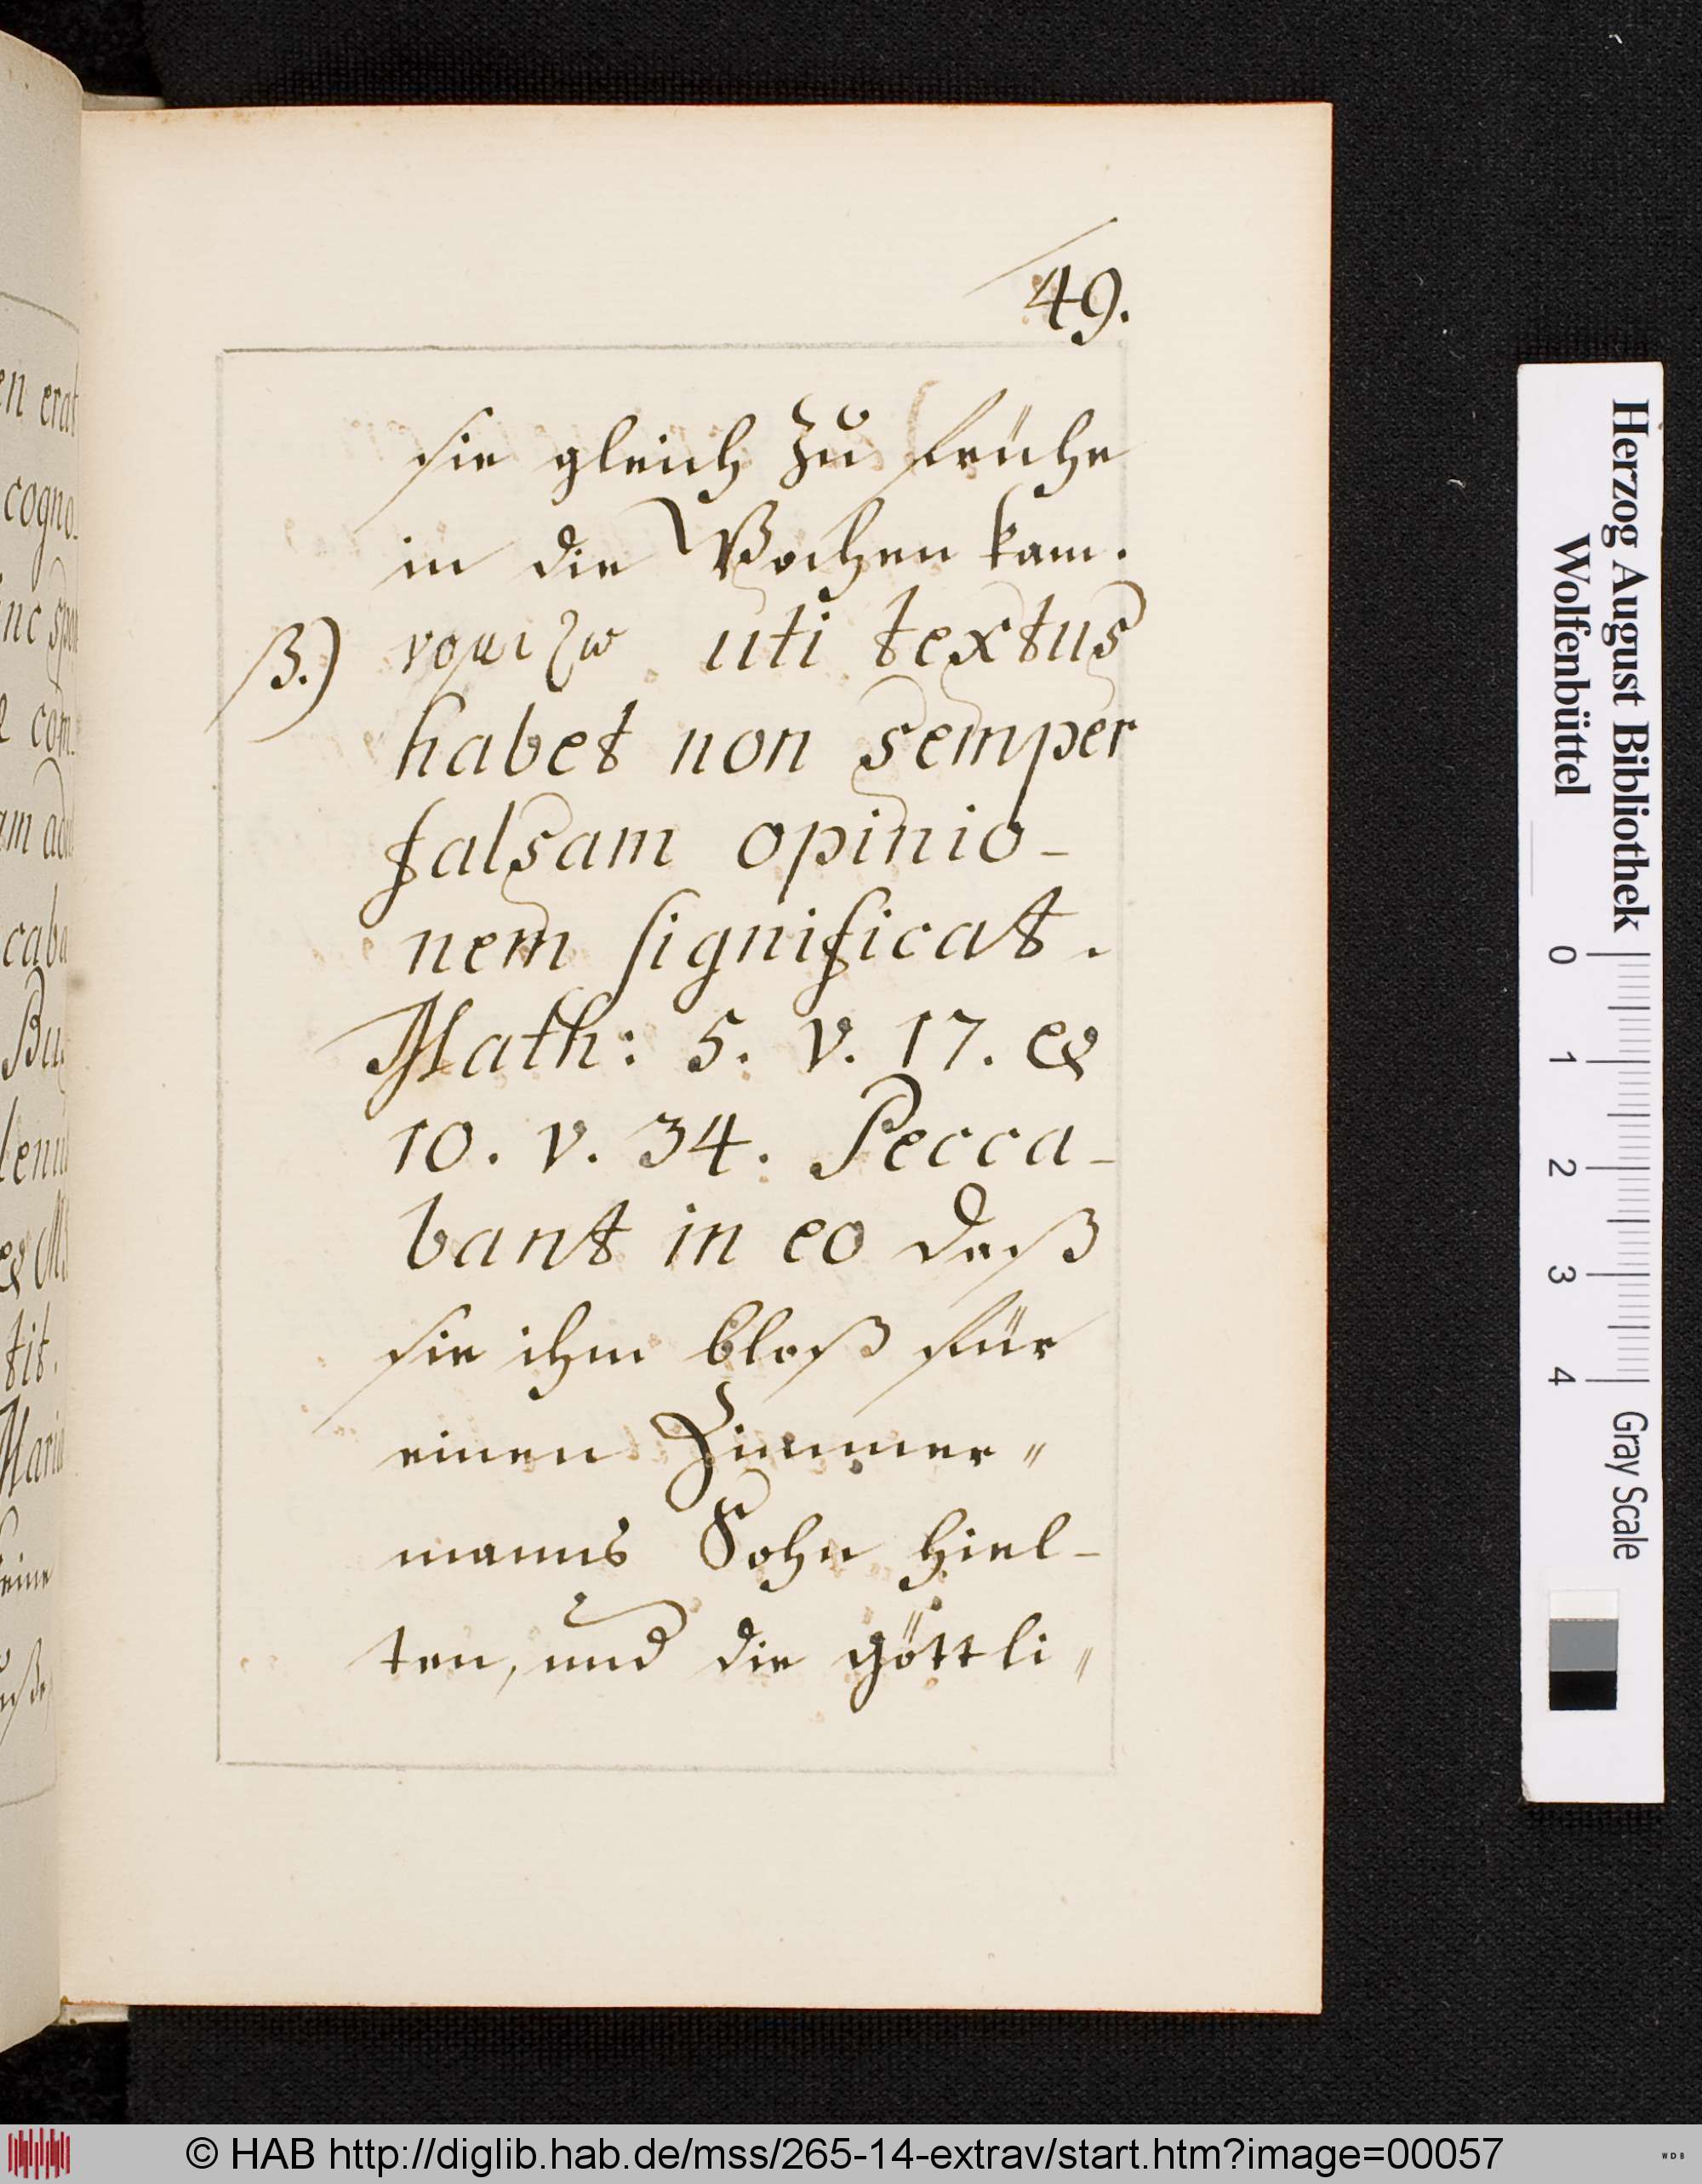 49.
sie gleich zu frühe
in die Wochen kam.
β.) νομιζω uti textus
habet non semper
falsam opinio-
nem significat.
Math: 5. v. 17. et
10. v. 34. Pecca-
bant in eo daß
sie ihm bloß für
einen Zimmer"
manns Sohn hiel-
ten, und die göttli"
en erat
cogno-
inc spon
com-
am adul
caba
Bu-
et M
tit.
Maria
seine
Herzog August Bibliothek
Wolfenbüttel
0 1 2 3 4 Gray Scale
© HAB http://diglib.hab.de/mss/265-14-extrav/start.htm?image=00057
WDB